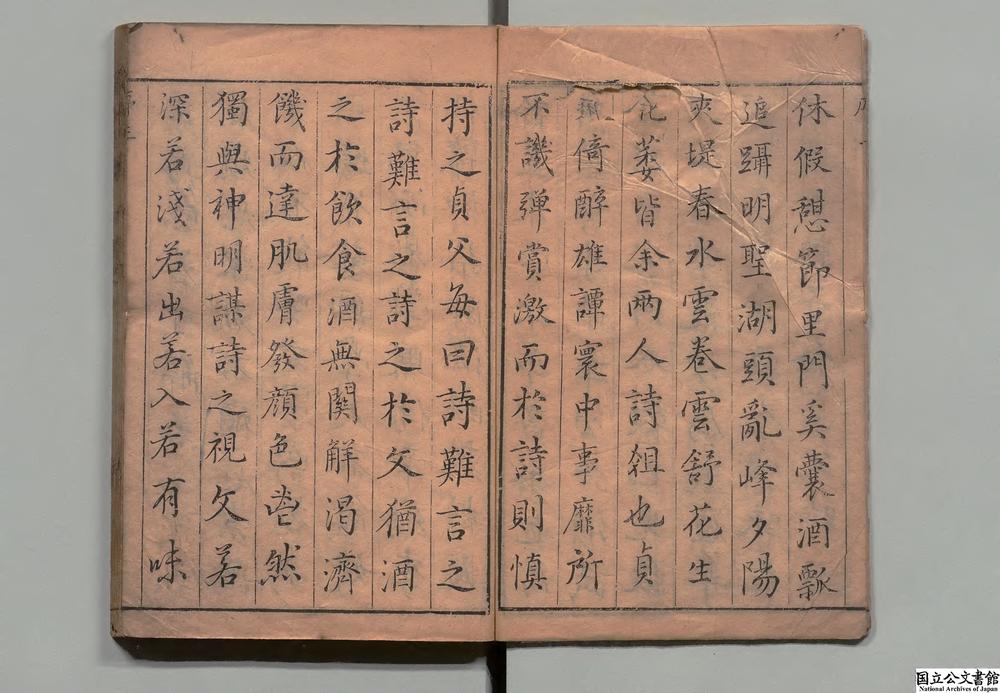 休假憩節里門奚囊酒瓢
追躡明聖湖頭亂峰夕陽
爽堤春水雲卷雲舒花生
花萎皆余兩人詩俎也貞
倚醉雄譚寰中事靡所
不譏彈賞激而於詩則慎
持之貞父每曰詩難言之
詩難言之詩之於文猶酒
之於飲食酒無關解渴濟
饑而達肌膚發顏色盎然
獨與神明謀詩之視文若
深若淺若出若入若有味
国立公文書館
National Archives of Japan